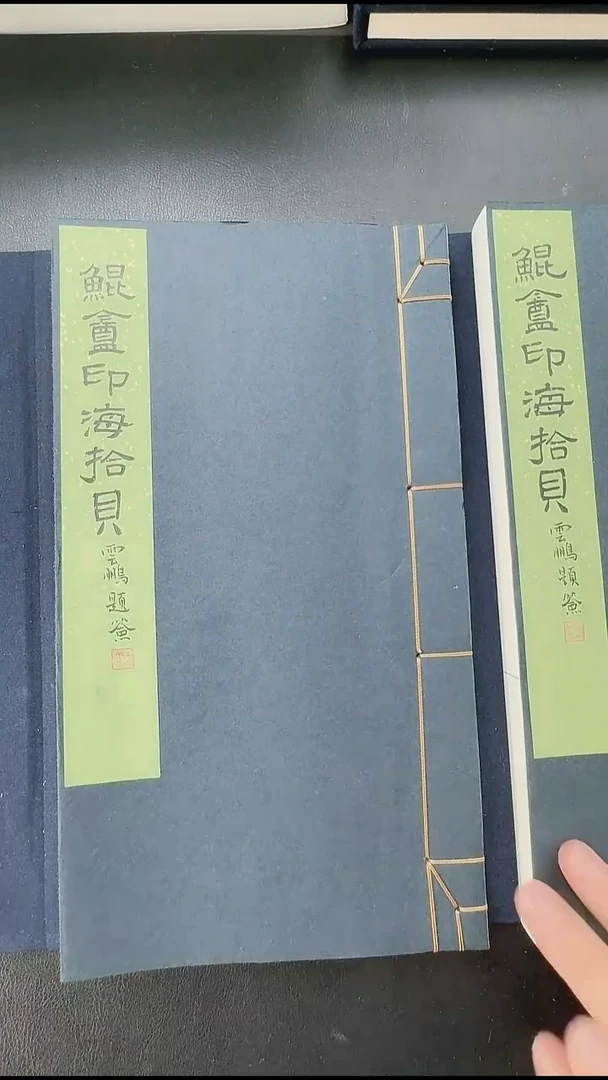 鯤盦印海拾貝
雲鵬題簽
鯤盦印海拾貝
雲鵬題簽